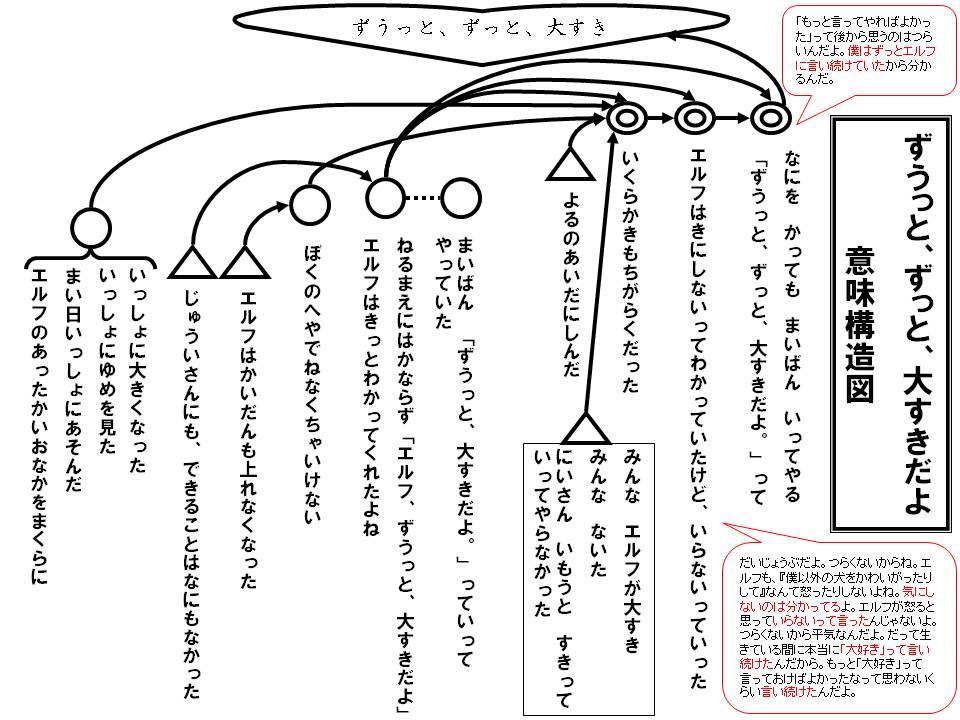 ずうっと、ずっと、大すきだよ
意味構造図
ずうっと、ずっと、大すき
「もっと言ってやればよかっ
た」って後から思うのはつら
いんだよ。僕はずっとエルフ
に言い続けていたから分か
るんだ。
なにを　かっても　まいばん　いってやる
「ずうっと、ずっと、大すきだよ。」って
エルフはきにしないってわかっていたけど、いらないっていった
いくらかきもちがらくだった
よるのあいだにしんだ
みんな　エルフが大すき
みんな　ないた
にいさん　いもうと　すきって
いってやらなかった
まいばん　「ずうっと、大すきだよ。」っていって
やっていた
ねるまえにはかならず「エルフ、ずうっと、大すきだよ」
エルフはきっとわかってくれたよね
ぼくのへやでねなくちゃいけない
エルフはかいだんも上れなくなった
じゅういさんにも、できることはなにもなかった
いっしょに大きくなった
いっしょにゆめを見た
まい日いっしょにあそんだ
エルフのあったかいおなかをまくらに
だいじょうぶだよ。つらくないからね。エ
ルフも、『僕以外の犬をかわいがったり
して』なんて怒ったりしないよね。気にし
ないのは分かってるよ。エルフが怒ると
思っていらないって言ったんじゃないよ。
つらくないから平気なんだよ。だって生
きている間に本当に「大好き」って言い
続けたんだから。もっと「大好き」って
言っておけばよかったなって思わないく
らい言い続けたんだよ。